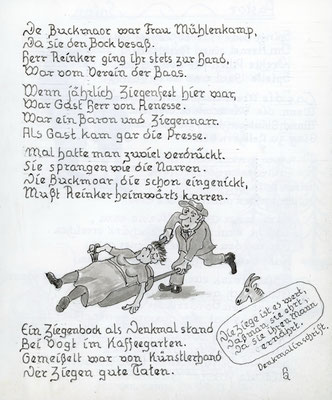 De Buckmoar war Frau Mühlenkamp,
Da sie den Bock besaß.
Herr Reinker ging ihr stets zur Hand,
War vom Verein der Baas.
Wenn jährlich Ziegenfest hier war,
War Gast Herr von Renesse.
War ein Baron und Ziegennarr.
Als Gast kam gar die Presse.
Mal hatte man zuviel verdrückt.
Sie sprangen wie die Narren.
Die Buckmoar, die schon eingenickt,
Mußt Reinker heimwärts karren.
Ein Ziegenbock als Denkmal stand
Bei Vogt im Kaffeegarten.
Gemeißelt war von Künstlerhand
Der Ziegen gute Taten.
Die Ziege ist es wert,
Daß man sie ehrt,
Da sie ihren Mann
ernährt.
Denkmalinschrift.